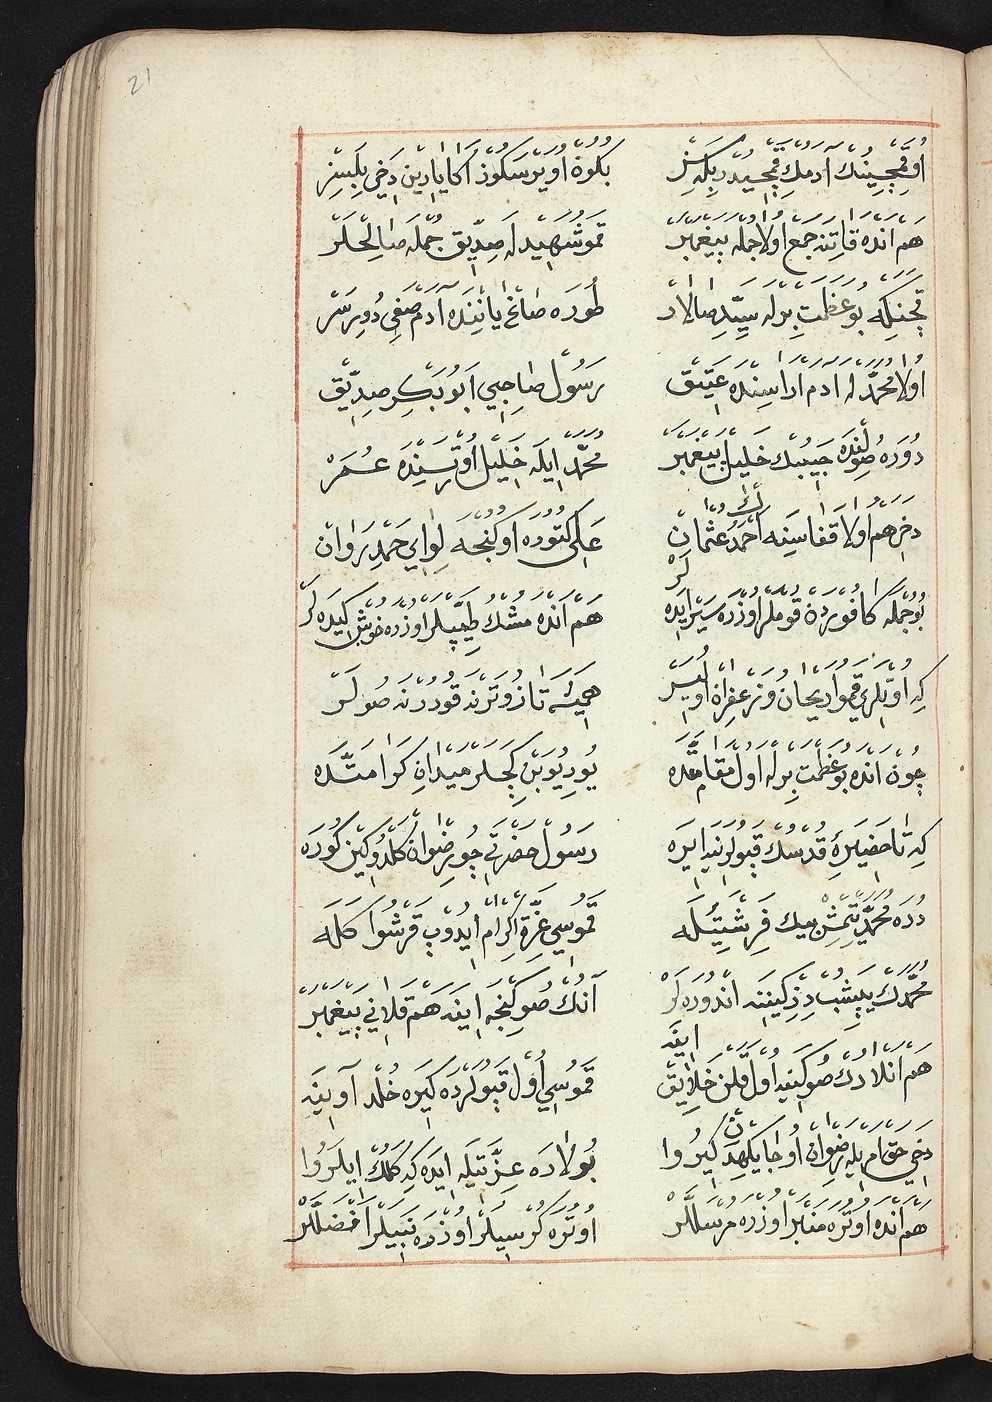 21
اوقمچینك آدمك قمچیدر بكز بكوة اویرسكوز اكا یارین دخی بلسز
هم انده قاتنه جمع اولا جمله پیغمبر قموشهیدله صدیق جمله صالحلر
قچنكه بو عظمت برله سید سالار طوره صاغ یاننده آدم صفی
اولا محمد له آدم اراسنده عتیق رسول صاحبی ابو بكر صدیق
دوره صولنده حبیبك خلیل پیغمبر محمد ایله خلیل اورتسنده عمر
دخی هم اولا قفاسنه احمدك عثمان علی كتوره اوكنجه لوای حمد روان
بو جمله كافوردن قوملر اوزره سیر ایده لر هم انده مشك طیبلر اوزره خوش كیده لر
كه اوتلری قمو ریحان و زعفران اولیسر همیشه تازه و تر نه قورر نه صولر
چون انده بو عظمت برله اول مقامده یوریوبن كچلر میدان كرامتده
كه تا حضیره قدسك قپولرینه ایره رسول حضرتی چو رضوان كلدوكین كوره
دره محمد یتمش بیك فرشتیله قموسی عزة اكرام ایدوب قرشوا كله
محمدك یپشب دزكیننه اندوره لر آنك صوكنجه اینه هم قلانی پیغمبر
هم انلاردك صوكنه اول قلن خلایق اینه قموسی اول قپولرده كیره خلد آوینه
دخی حق امریله رضوان اوجا یكهدن كیروا بولاده عزتیله ایده كه كلمك ایلروا
هم انده اوتره منبر اوزره مرسللر اوتره كرسیلر اوزره نبیلر افضللر